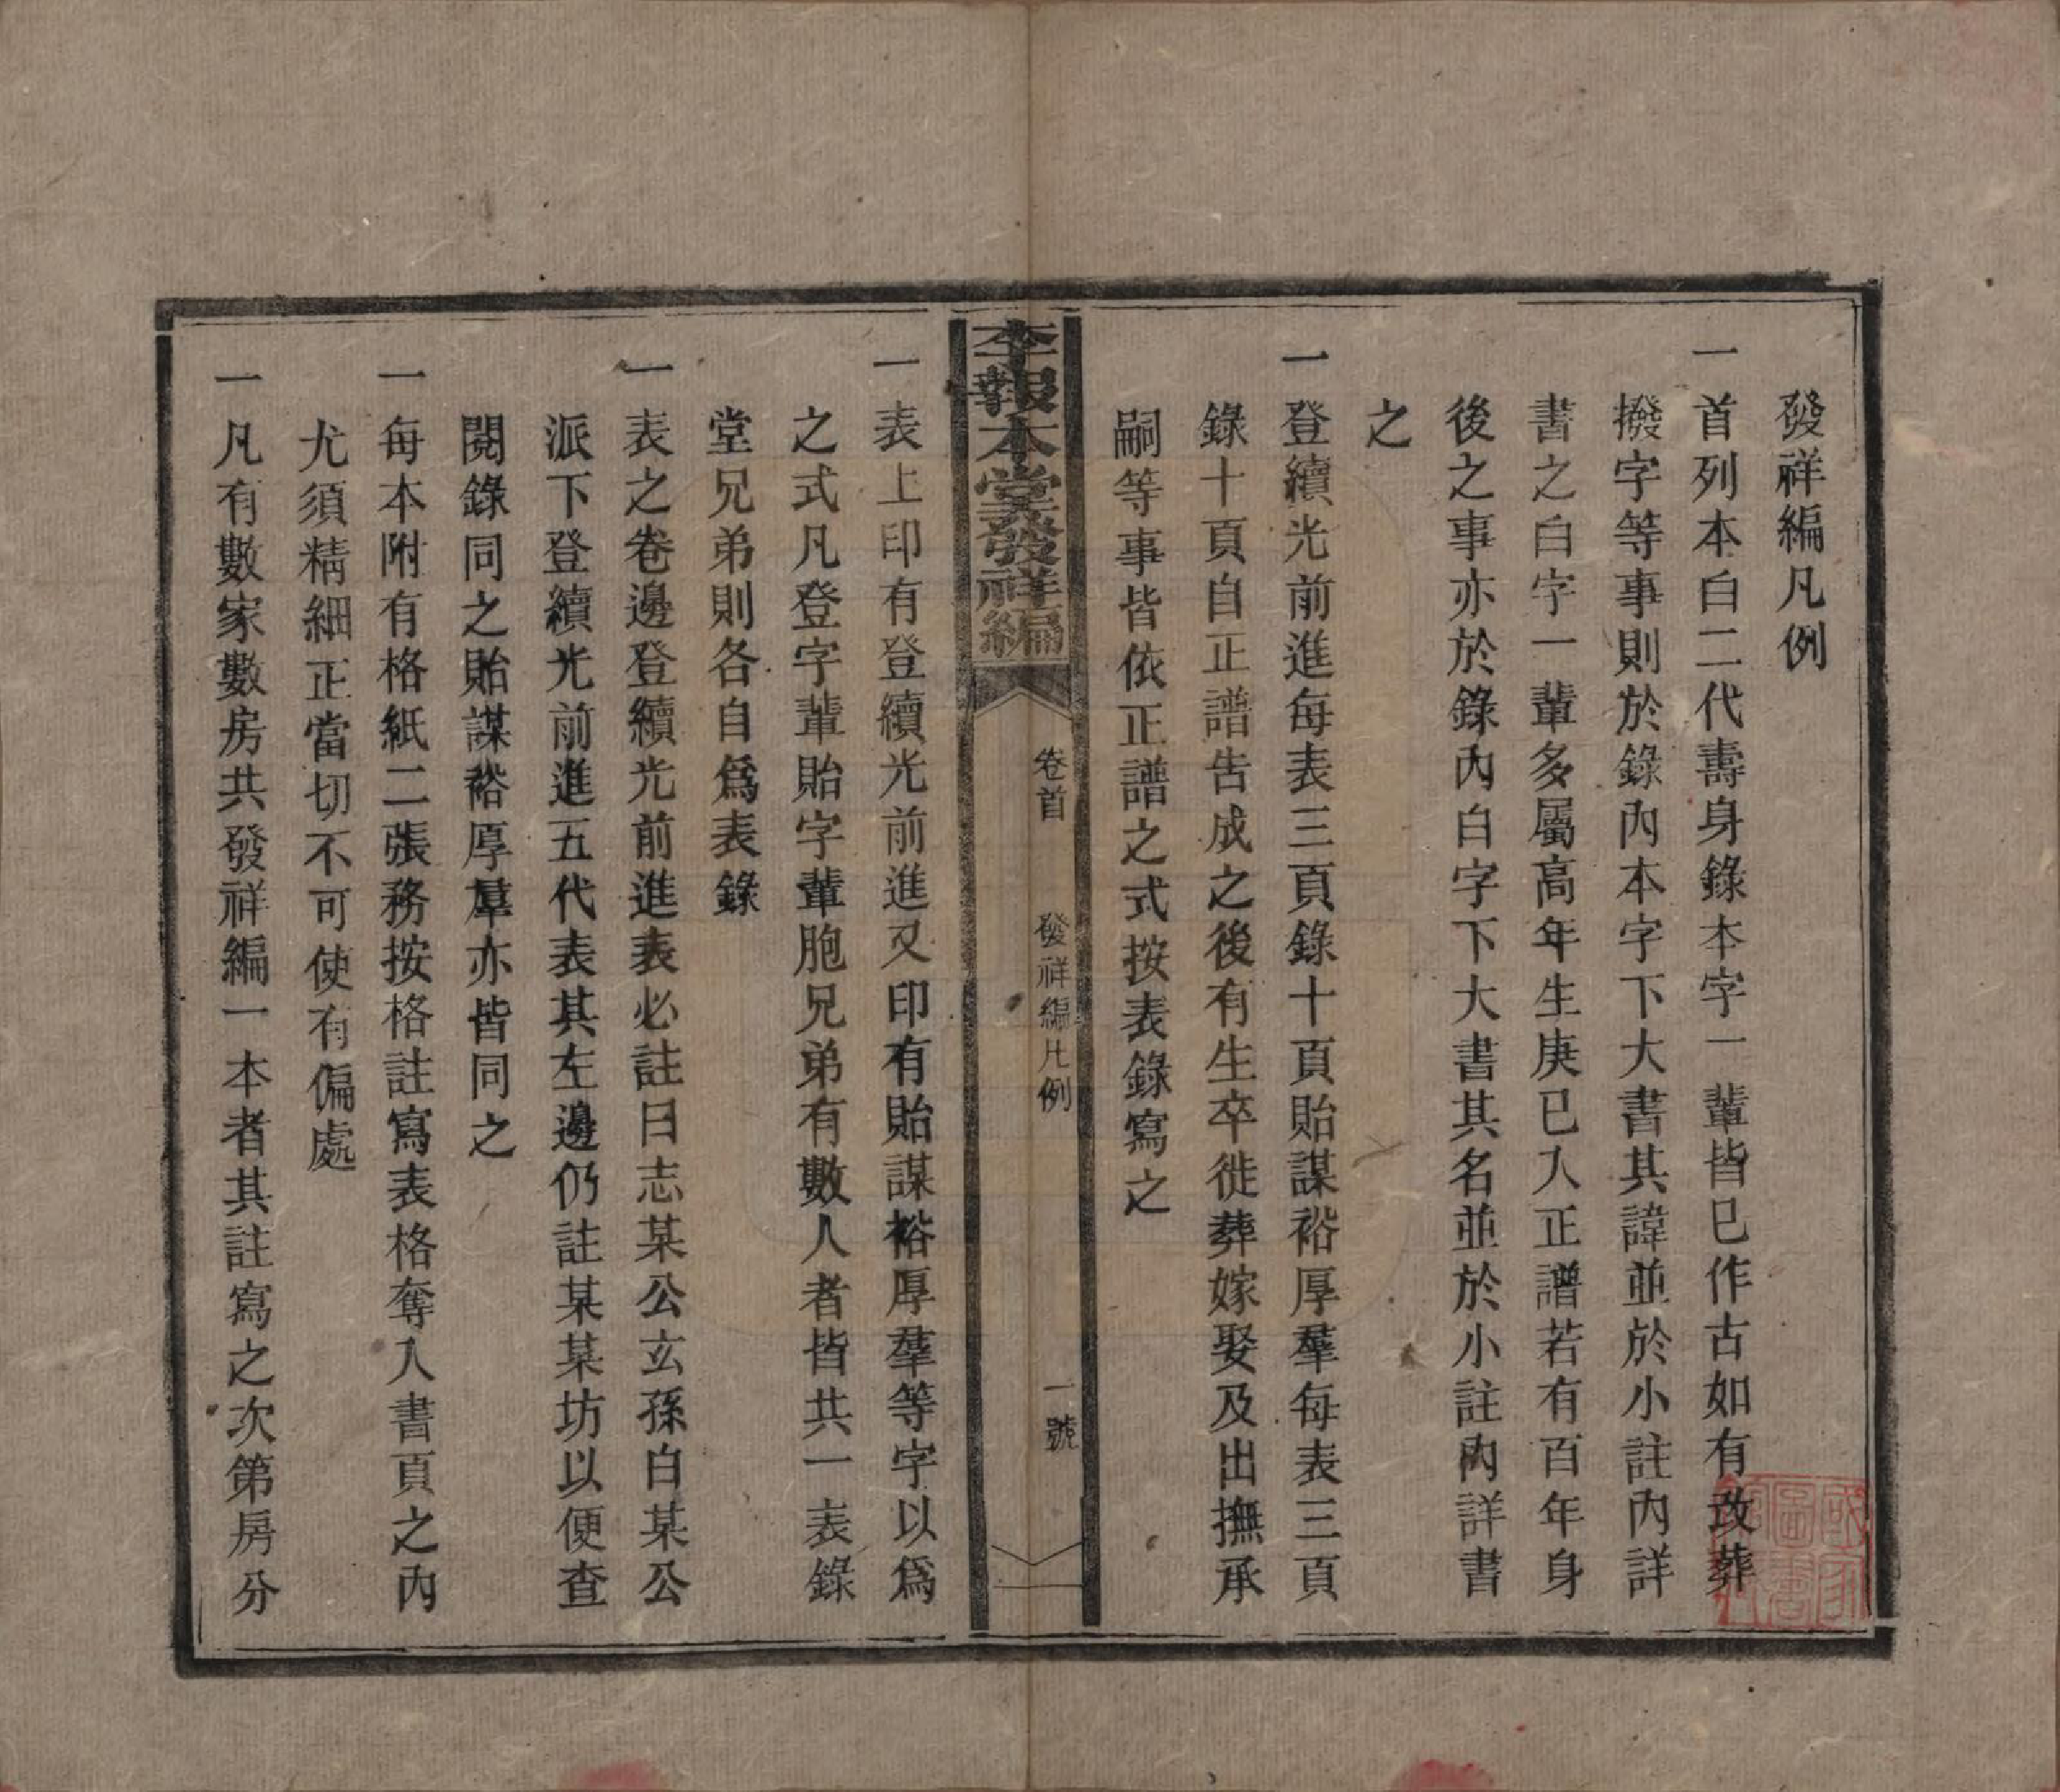 發祥編凡例
一首列本白二代壽身錄本字一輩皆已作古如有改葬
撥字等事則於錄內本字下大書其諱並於小註內詳
書之白字一輩多屬高年生庚已入正譜若有百年身
後之事亦於錄內白字下大書其名並於小註內詳書
之
一登續光前進每表三頁錄十頁貽謀裕厚羣每表三頁
錄十頁自正譜告成之後有生卒徙葬嫁娶及出撫承
嗣等事皆依正譜之式按表錄寫之
李報本堂發祥編
卷首
發祥編凡例
一號
一表上印有登續光前進又印有貽謀裕厚羣等字以爲
之式凡登字輩貽字輩胞兄弟有數人者皆共一表錄
堂兄弟則各自爲表錄
一表之卷邊登續光前進表必註曰志某公玄孫白某公
派下登續光前進五代表其左邊仍註某某坊以便查
閱錄同之貽謀裕厚羣亦皆同之
一每本附有格紙二張務按格註寫表格奪入書頁之內
尤須精細正當切不可使有偏處
一凡有數家數房共發祥編一本者其註寫之次第房分
國家
圖書